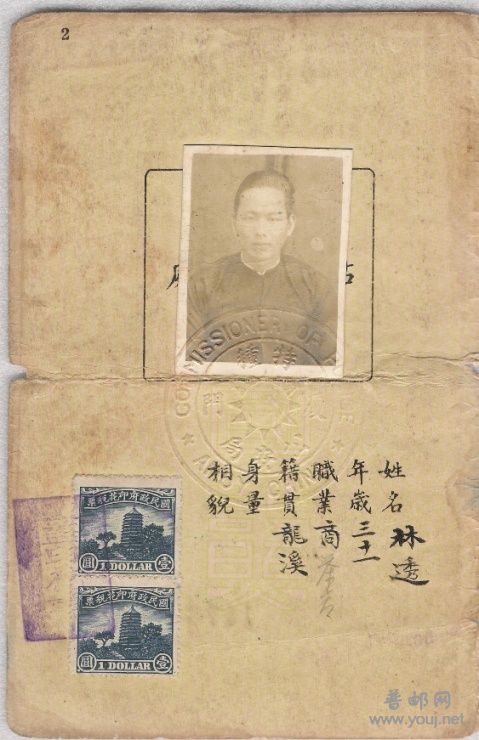 2
COMMISSIONER OF
姓名 林透
年歲 三十一
職業 商
籍貫 龍溪
身量
相貌
國民政府印花稅票
壹 1 DOLLAR 圓
國民政府印花稅票
壹 1 DOLLAR 圓
普邮网
www.youj.net